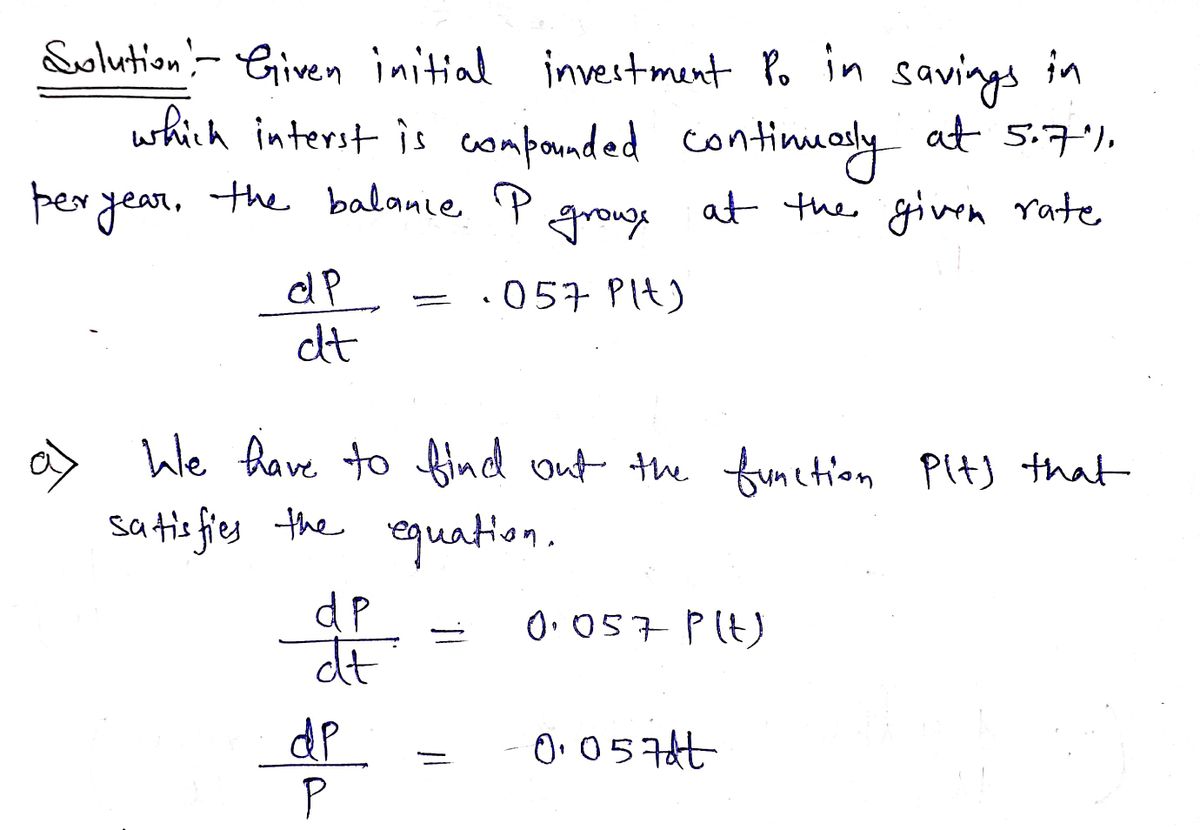 Solution:- Given initial investment P₀ in savings in
which interst is compounded continuosly at 5.7%.
per year, the balance P grows at the given rate
dP/dt = .057 P(t)
a) We have to find out the function P(t) that
satisfies the equation.
dP/dt = 0.057 P(t)
dP/P = 0.057dt